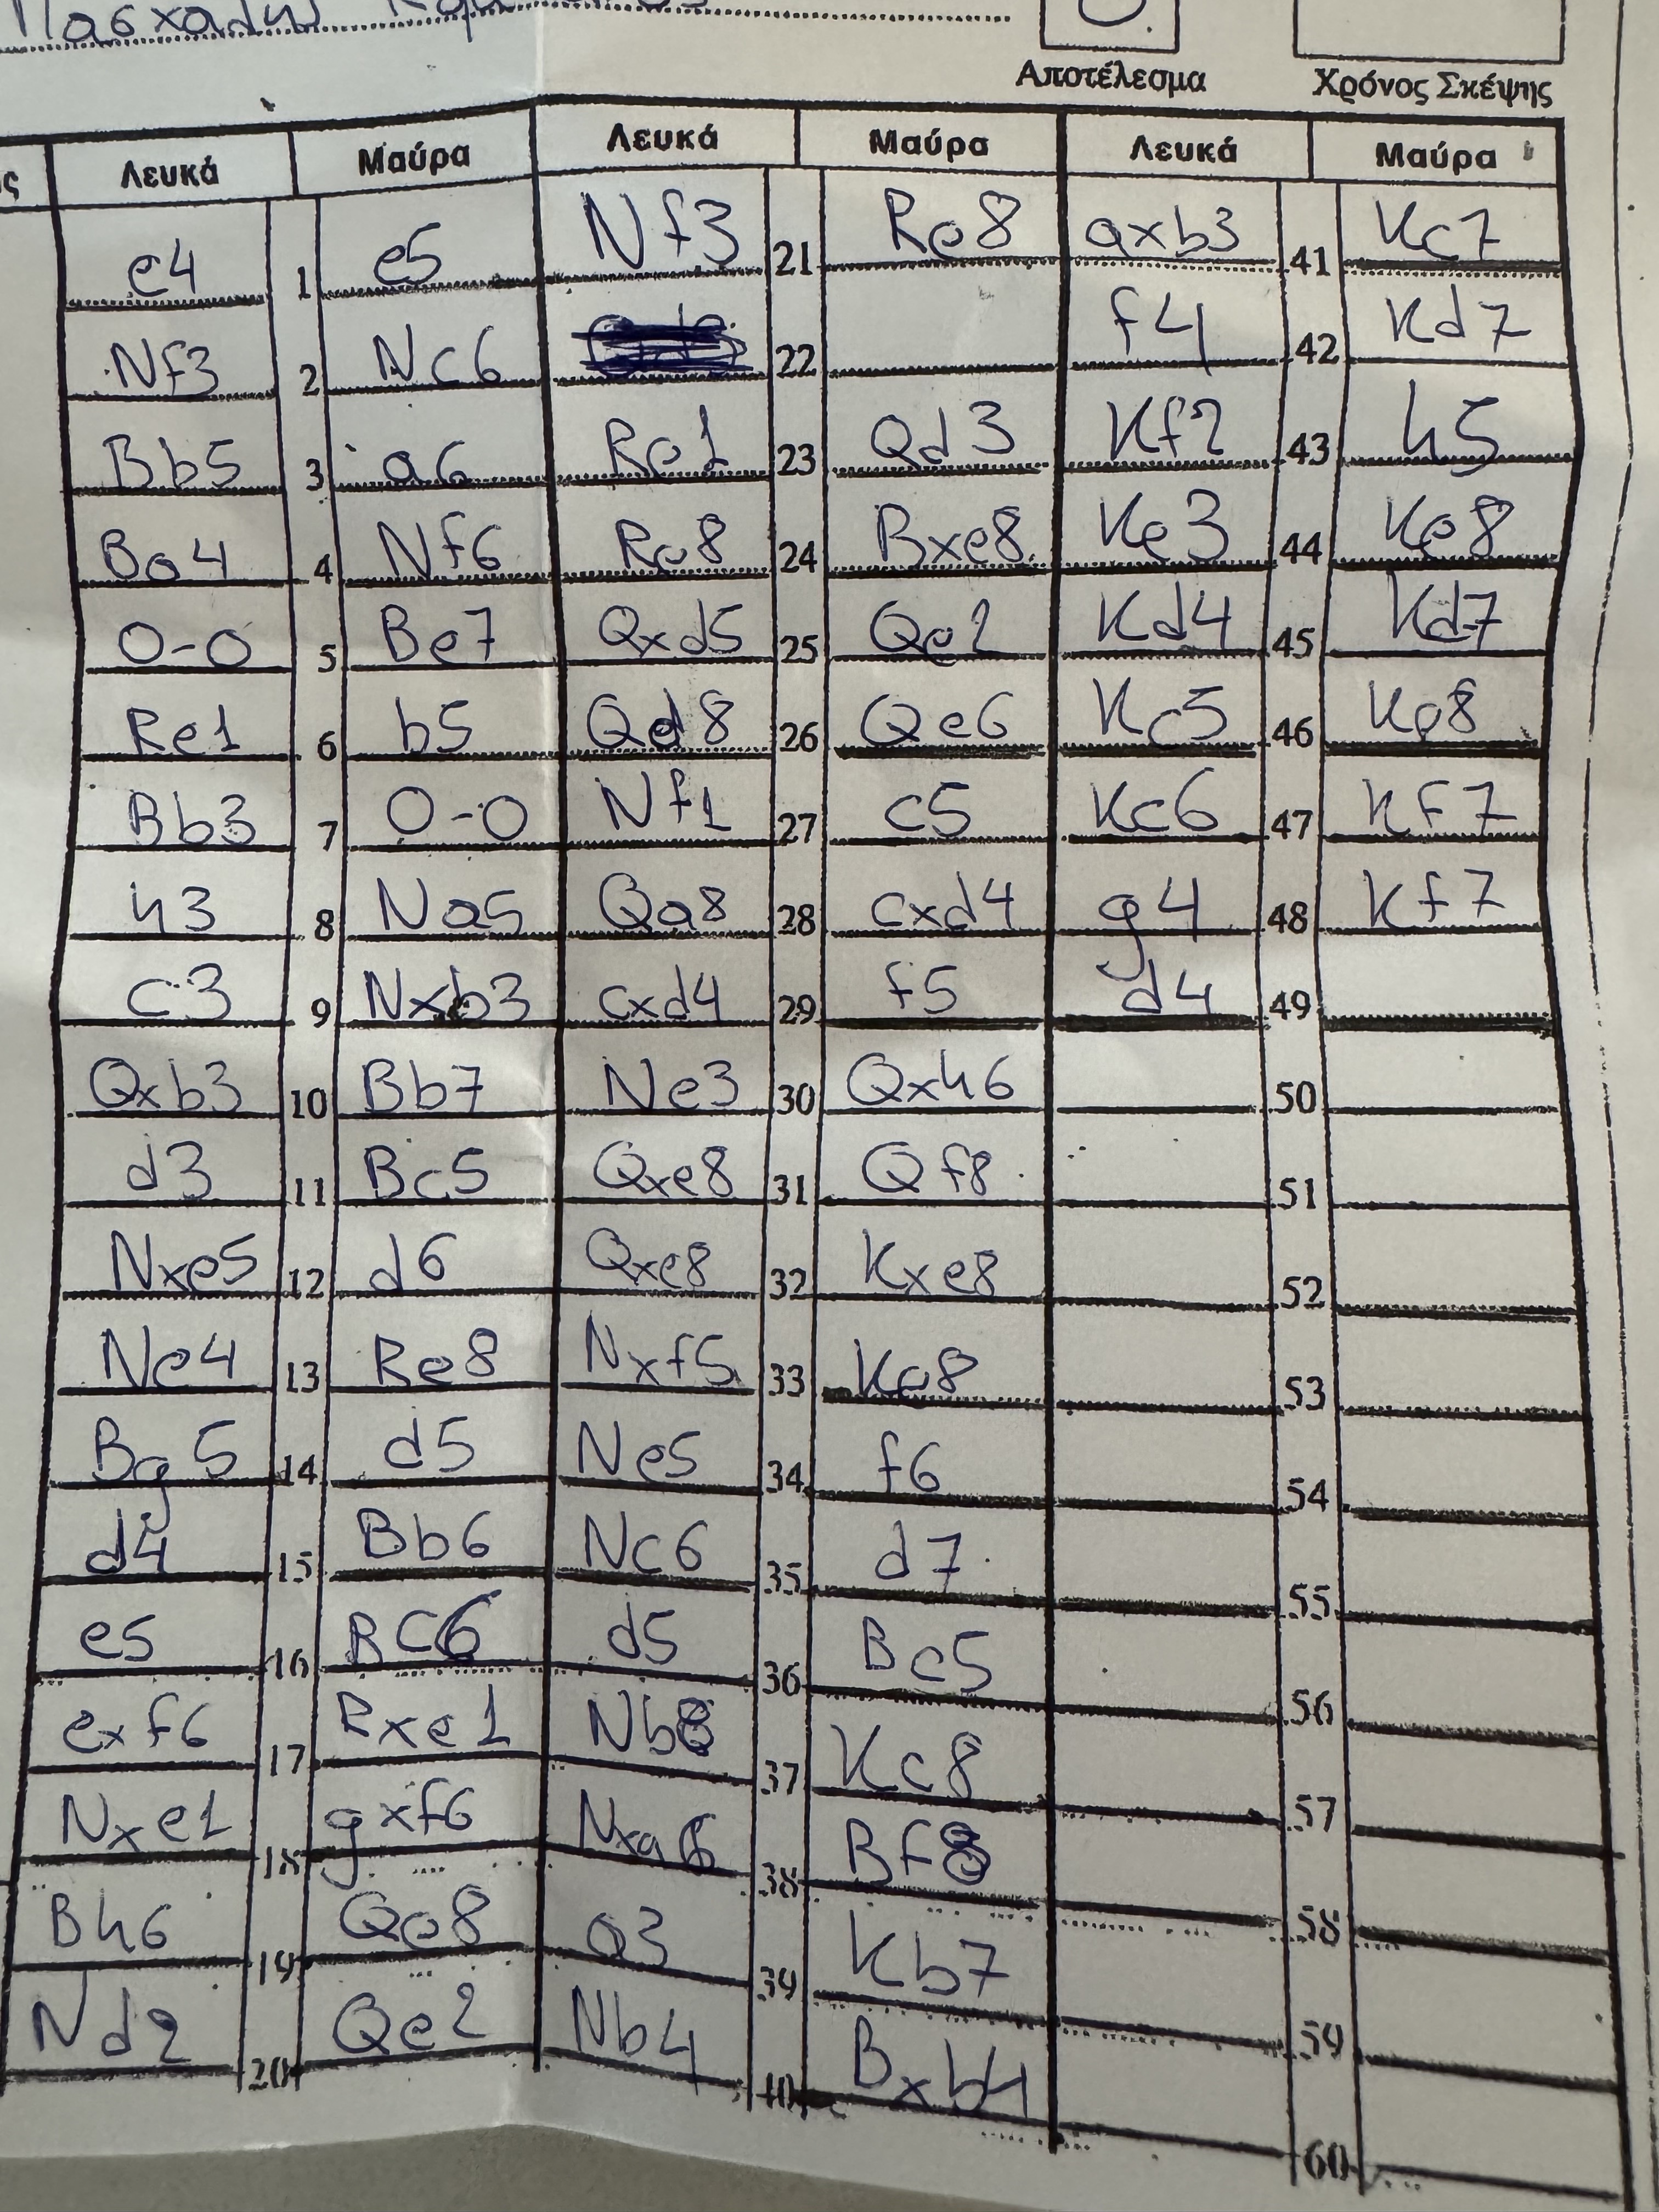 Αποτέλεσμα Χρόνος Σκέψης
Λευκά Μαύρα Λευκά Μαύρα Λευκά Μαύρα
e4 1 e5 Nf3 21 Re8 axb3 41 Kc7
Nf3 2 Nc6 22 f4 42 Kd7
Bb5 3 a6 Re1 23 Qd3 Kf2 43 h5
Ba4 4 Nf6 Re8 24 Bxe8 Ke3 44 Ke8
O-O 5 Be7 Qxd5 25 Qe2 Kd4 45 Kd7
Re1 6 b5 Qd8 26 Qe6 Kc5 46 Ke8
Bb3 7 O-O Nf1 27 c5 Kc6 47 Kf7
h3 8 Na5 Qa8 28 cxd4 g4 48 Kf7
c3 9 Nxb3 cxd4 29 f5 d4 49
Qxb3 10 Bb7 Ne3 30 Qxh6 50
d3 11 Bc5 Qxe8 31 Qf8 51
Nxe5 12 d6 Qxe8 32 Kxe8 52
Ne4 13 Re8 Nxf5 33 Ka8 53
Bg5 14 d5 Ne5 34 f6 54
d4 15 Bb6 Nc6 35 d7 55
e5 16 BC6 d5 36 Bc5 56
exf6 17 Rxe1 Nb8 37 Kc8 57
Nxe1 18 gxf6 Nxa6 38 Bf8 58
Bh6 19 Qe8 a3 39 Kb7 59
Nd2 20 Qe2 Nb4 40 Bxb4 60